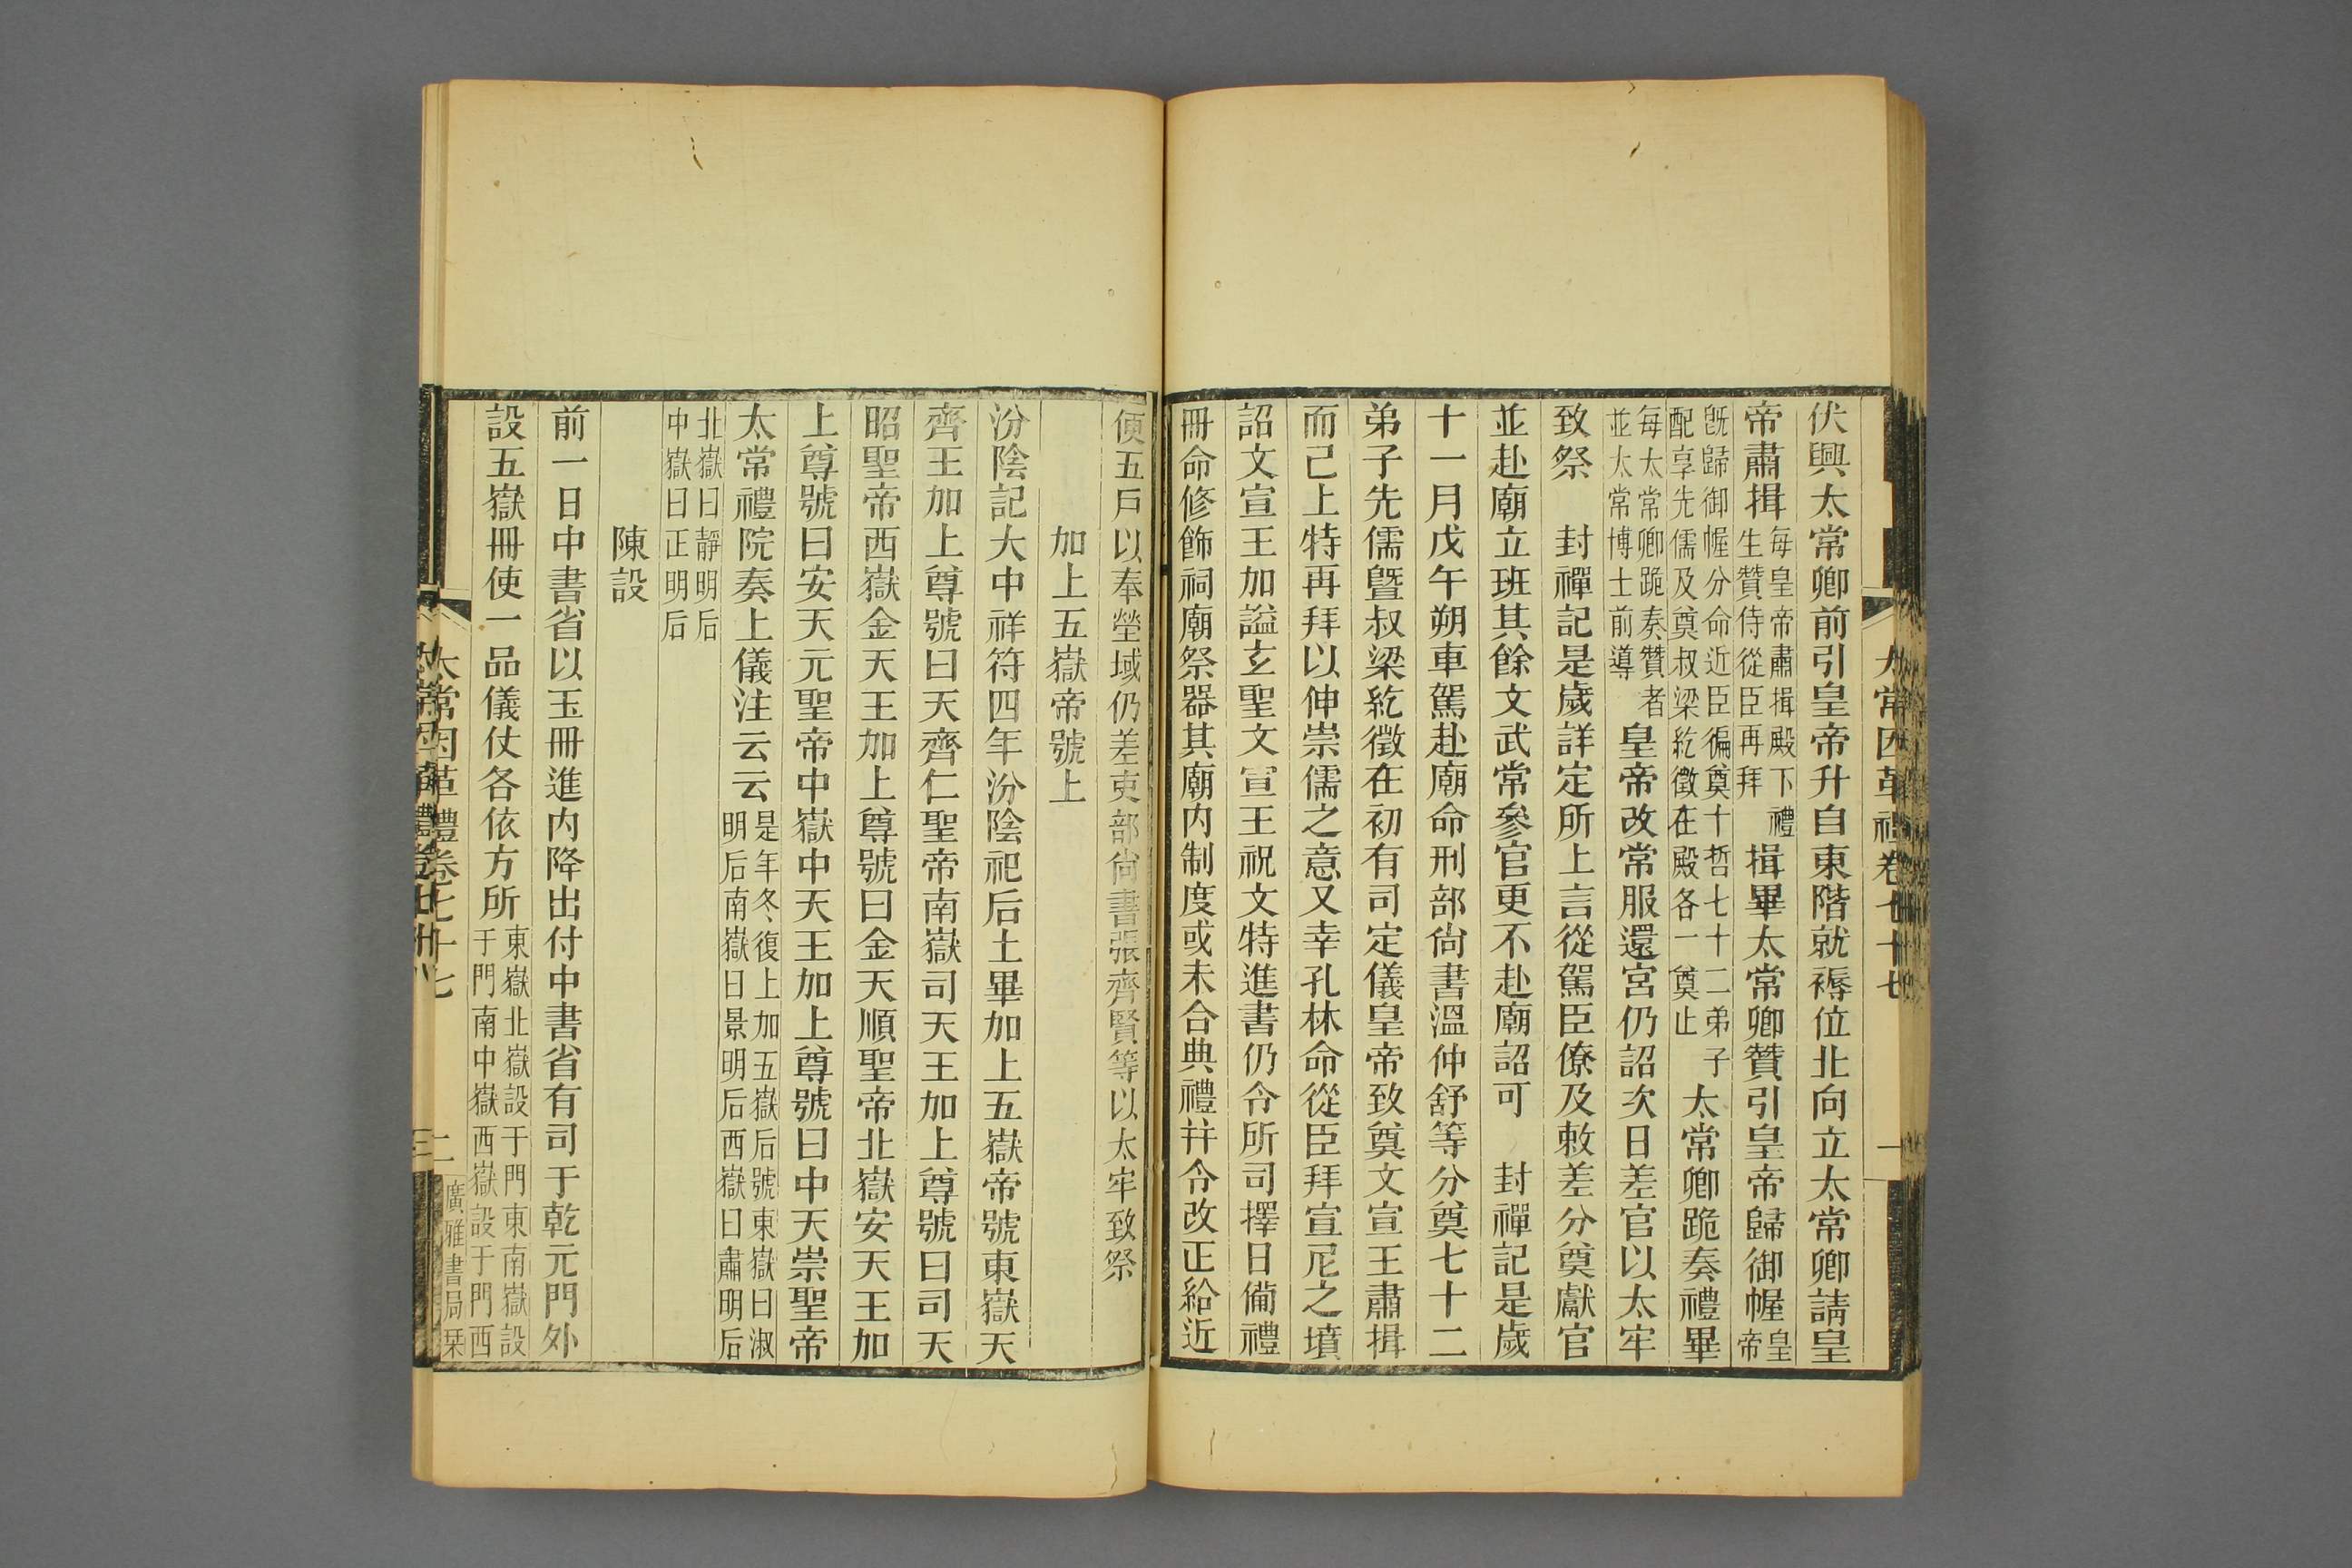 太常因革禮卷七十七
一
伏興太常卿前引皇帝升自東階就褥位北向立太常卿請皇
帝肅揖每皇帝肅揖殿下禮生贊侍從臣再拜揖畢太常卿贊引皇帝歸御幄皇帝
旣歸御幄分命近臣徧奠十哲七十二弟子配享先儒及奠叔梁紇徵在殿各一奠止太常卿跪奏禮畢
每太常卿跪奏贊者並太常博士前導皇帝改常服還宮仍詔次日差官以太牢
致祭　封禪記是歲詳定所上言從駕臣僚及敕差分奠獻官
並赴廟立班其餘文武常參官更不赴廟詔可　封禪記是歲
十一月戊午朔車駕赴廟命刑部尙書溫仲舒等分奠七十二
弟子先儒曁叔梁紇徵在初有司定儀皇帝致奠文宣王肅揖
而己上特再拜以伸崇儒之意又幸孔林命從臣拜宣尼之墳
詔文宣王加謚玄聖文宣王祝文特進書仍令所司擇日備禮
冊命修飾祠廟祭器其廟內制度或未合典禮幷令改正給近
便五戶以奉塋域仍差吏部尙書張齊賢等以太牢致祭
加上五嶽帝號上
汾陰記大中祥符四年汾陰祀后土畢加上五嶽帝號東嶽天
齊王加上尊號曰天齊仁聖帝南嶽司天王加上尊號曰司天
昭聖帝西嶽金天王加上尊號曰金天順聖帝北嶽安天王加
上尊號曰安天元聖帝中嶽中天王加上尊號曰中天崇聖帝
太常禮院奏上儀注云云是年冬復上加五嶽后號東嶽曰淑明后南嶽曰景明后西嶽曰肅明后
北嶽曰靜明后中嶽曰正明后
陳設
前一日中書省以玉冊進內降出付中書省有司于乾元門外
設五嶽冊使一品儀仗各依方所東嶽北嶽設于門東南嶽設于門南中嶽西嶽設于門西
太常因革禮卷七十七
二
廣雅書局栞